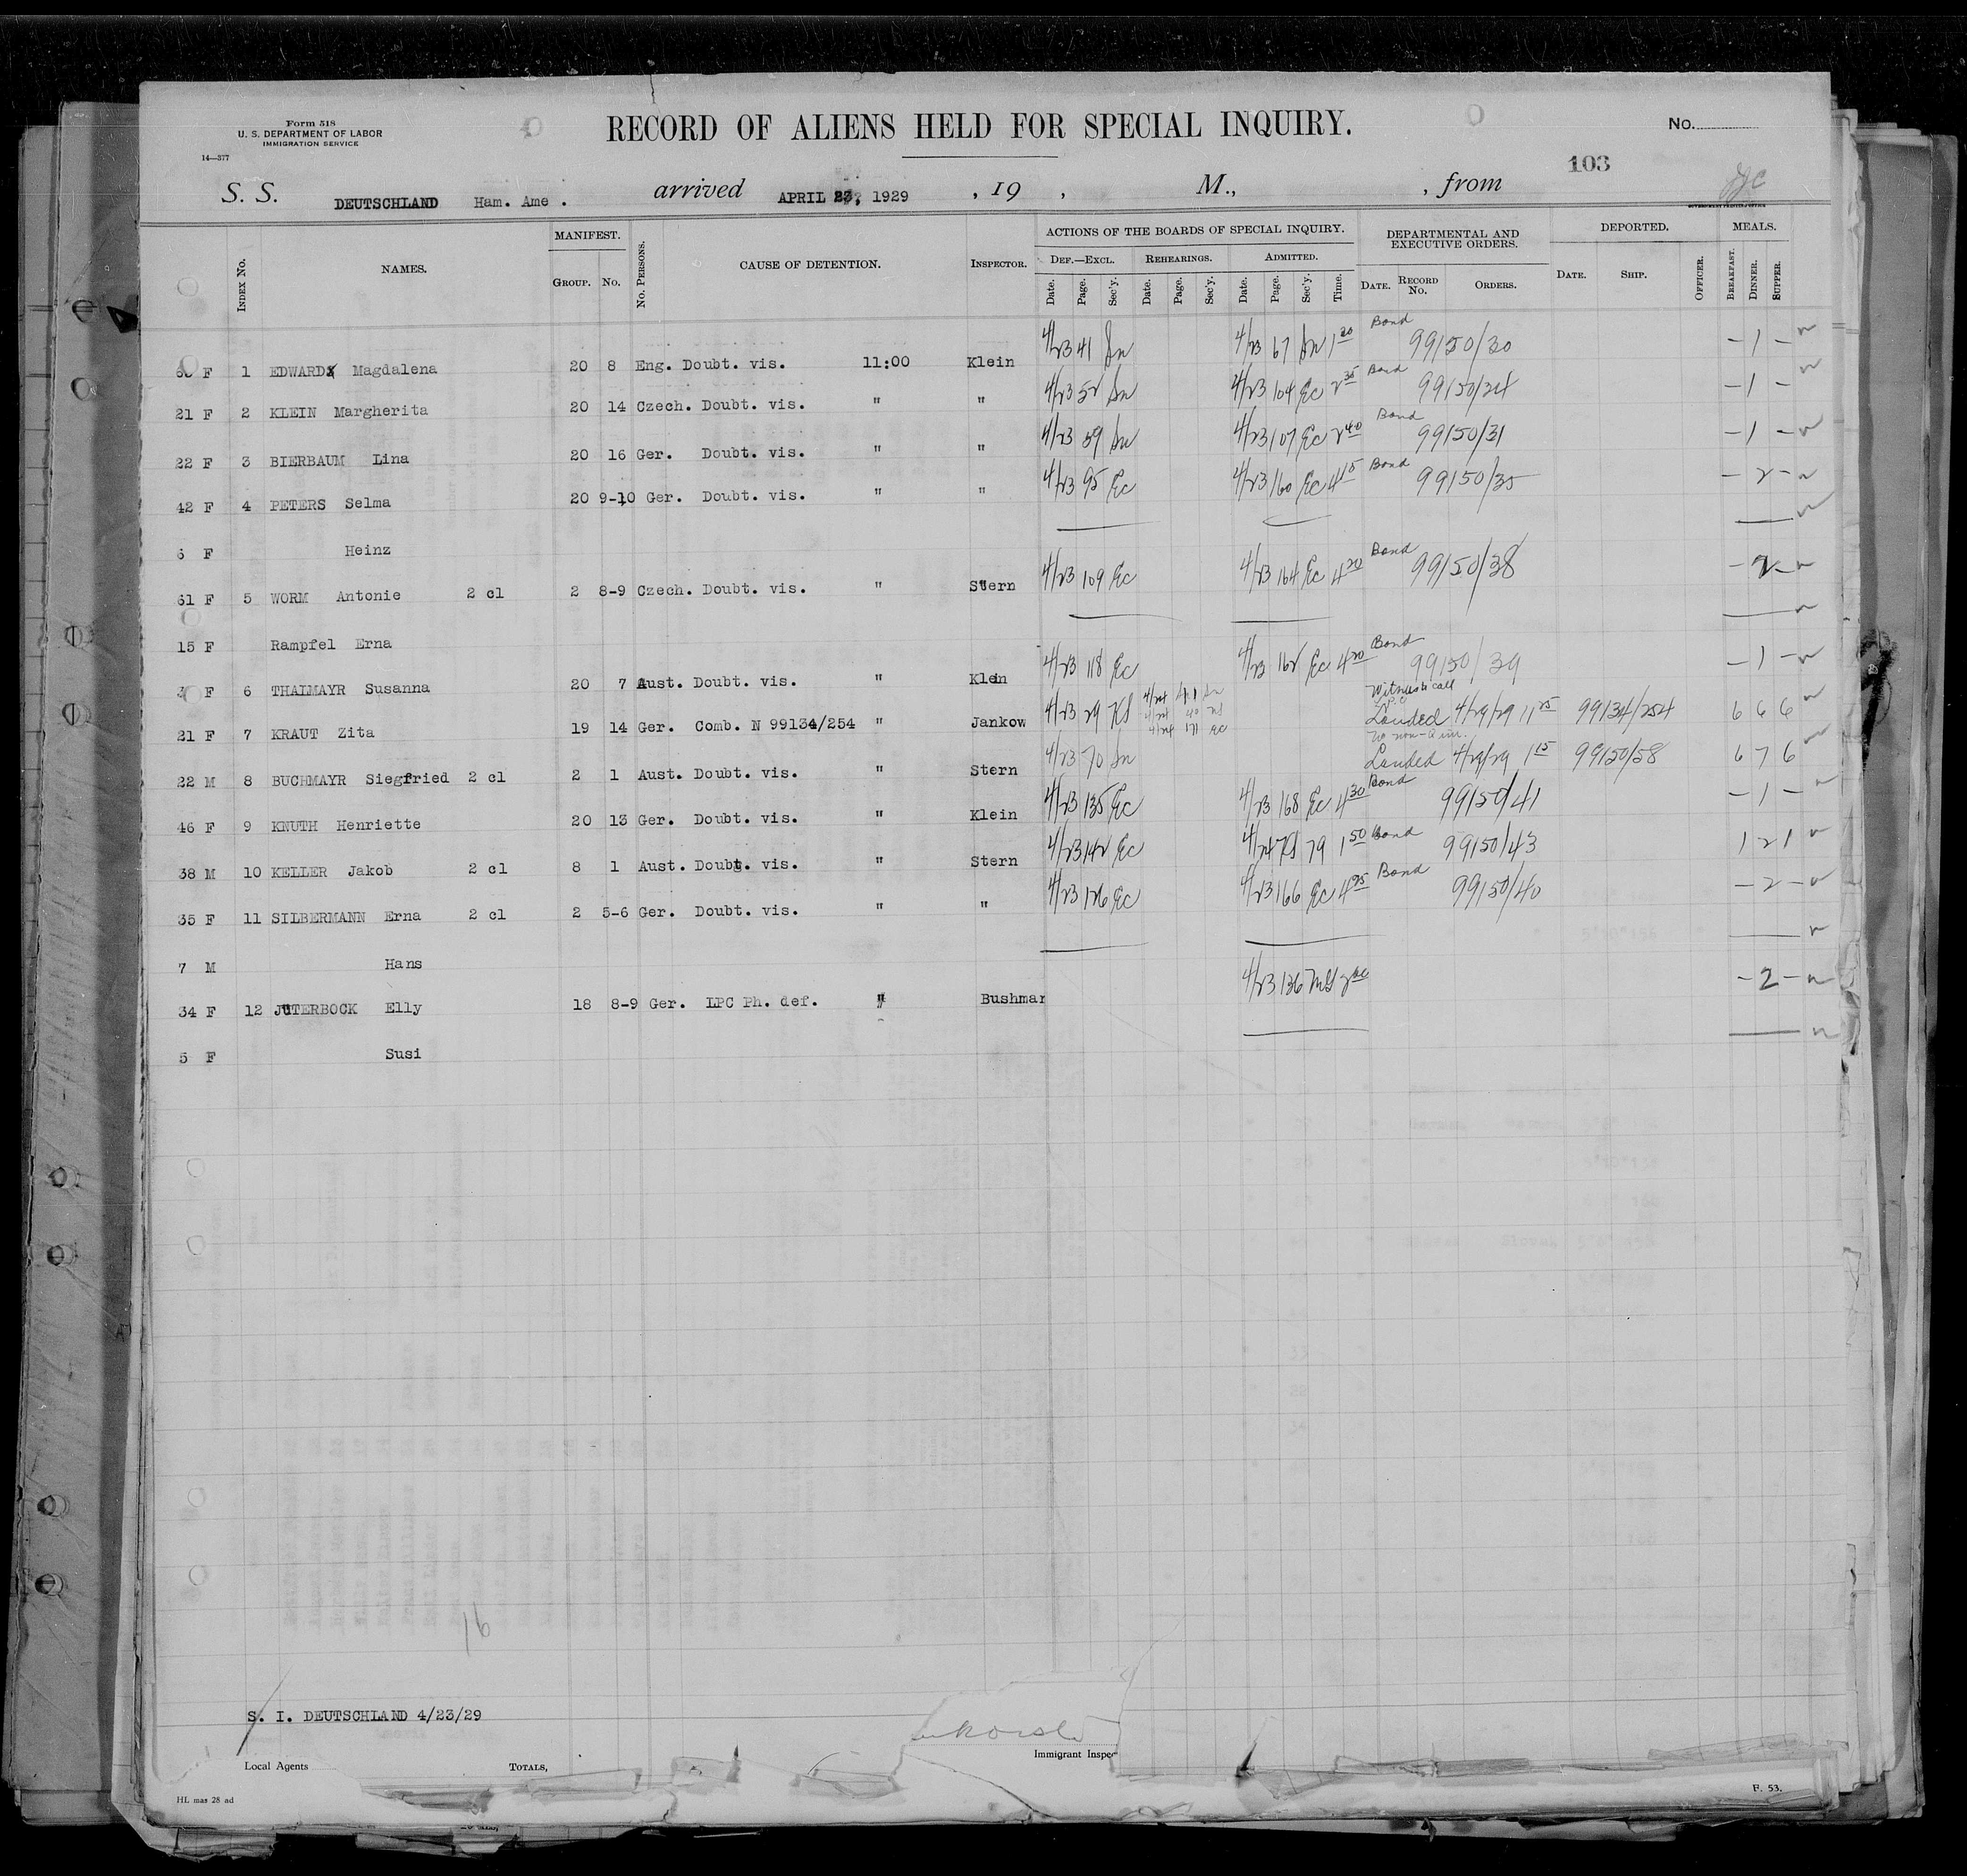 Form 518
U. S. DEPARTMENT OF LABOR
IMMIGRATION SERVICE
14—377
RECORD OF ALIENS HELD FOR SPECIAL INQUIRY.
No.
103
S. S. DEUTSCHLAND Ham. Ame . arrived APRIL 23, 1929 , 19 , M., , from
INDEX No. NAMES. MANIFEST. GROUP. No. No. PERSONS. CAUSE OF DETENTION. INSPECTOR. ACTIONS OF THE BOARDS OF SPECIAL INQUIRY. DEF.—EXCL. Date. Page. Sec'y. REHEARINGS. Date. Page. Sec'y. ADMITTED. Date. Page. Sec'y. Time. DEPARTMENTAL AND EXECUTIVE ORDERS. DATE. RECORD No. ORDERS. DEPORTED. DATE. SHIP. OFFICER. MEALS. BREAKFAST. DINNER. SUPPER.
F 1 EDWARDS Magdalena 20 8 Eng. Doubt. vis. 11:00 Klein 4/23 41 Sn 4/23 67 Sn 1 20 Bond 99150/30 – 1 –
21 F 2 KLEIN Margherita 20 14 Czech. Doubt. vis. " " 4/23 52 Sn 4/23 104 Ec 2 35 Bond 99150/34 – 1 –
22 F 3 BIERBAUM Lina 20 16 Ger. Doubt. vis. " " 4/23 59 Sn 4/23 107 Ec 2 40 Bond 99150/31 – 1 –
42 F 4 PETERS Selma 20 9-10 Ger. Doubt. vis. " " 4/23 95 Ec 4/23 160 Ec 4 15 Bond 99150/35 – 2 –
6 F Heinz
61 F 5 WORM Antonie 2 cl 2 8-9 Czech. Doubt. vis. " Stern 4/23 109 Ec 4/23 164 Ec 4 20 Bond 99150/38 – 2 –
15 F Rampfel Erna
F 6 THALMAYR Susanna 20 7 Aust. Doubt. vis. " Klein 4/23 118 Ec 4/23 162 Ec 4 20 Bond 99150/39 – 1 –
21 F 7 KRAUT Zita 19 14 Ger. Comb. N 99134/254 " Jankow 4/23 29 KS 4/24 171 Ec Landed 4/29/29 11 25 99134/254 6 6 6
22 M 8 BUCHMAYR Siegfried 2 cl 2 1 Aust. Doubt. vis. " Stern 4/23 70 Sn Landed 4/29/29 1 15 99150/58 6 7 6
46 F 9 KNUTH Henriette 20 13 Ger. Doubt. vis. " Klein 4/23 135 Ec 4/23 168 Ec 4 30 Bond 99150/41 – 1 –
38 M 10 KELLER Jakob 2 cl 8 1 Aust. Doubt. vis. " Stern 4/23 142 Ec 4/24 KS 79 1 50 Bond 99150/43 1 2 1
35 F 11 SILBERMANN Erna 2 cl 2 5-6 Ger. Doubt. vis. " " 4/23 126 Ec 4/23 166 Ec 4 25 Bond 99150/40 – 2 –
7 M Hans
34 F 12 JUTERBOCK Elly 18 8-9 Ger. LPC Ph. def. " Bushmar 4/23 136 – 2 –
5 F Susi
16
S. I. DEUTSCHLAND 4/23/29
Local Agents TOTALS, Immigrant Inspec
HL mas 28 ad
F. 53.